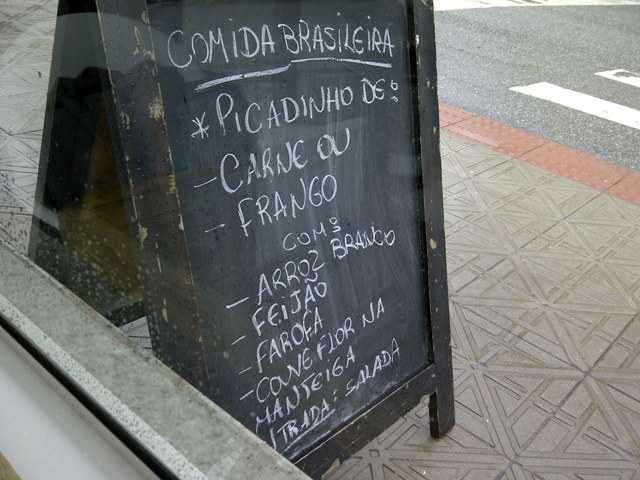 COMIDA BRASILEIRA
* PICADINHO DE:
- CARNE OU
- FRANGO
COM:
- ARROZ BRANCO
- FEIJÃO
- FAROFA
- COUVE FLOR NA
MANTEIGA
ITRADA: SALADA